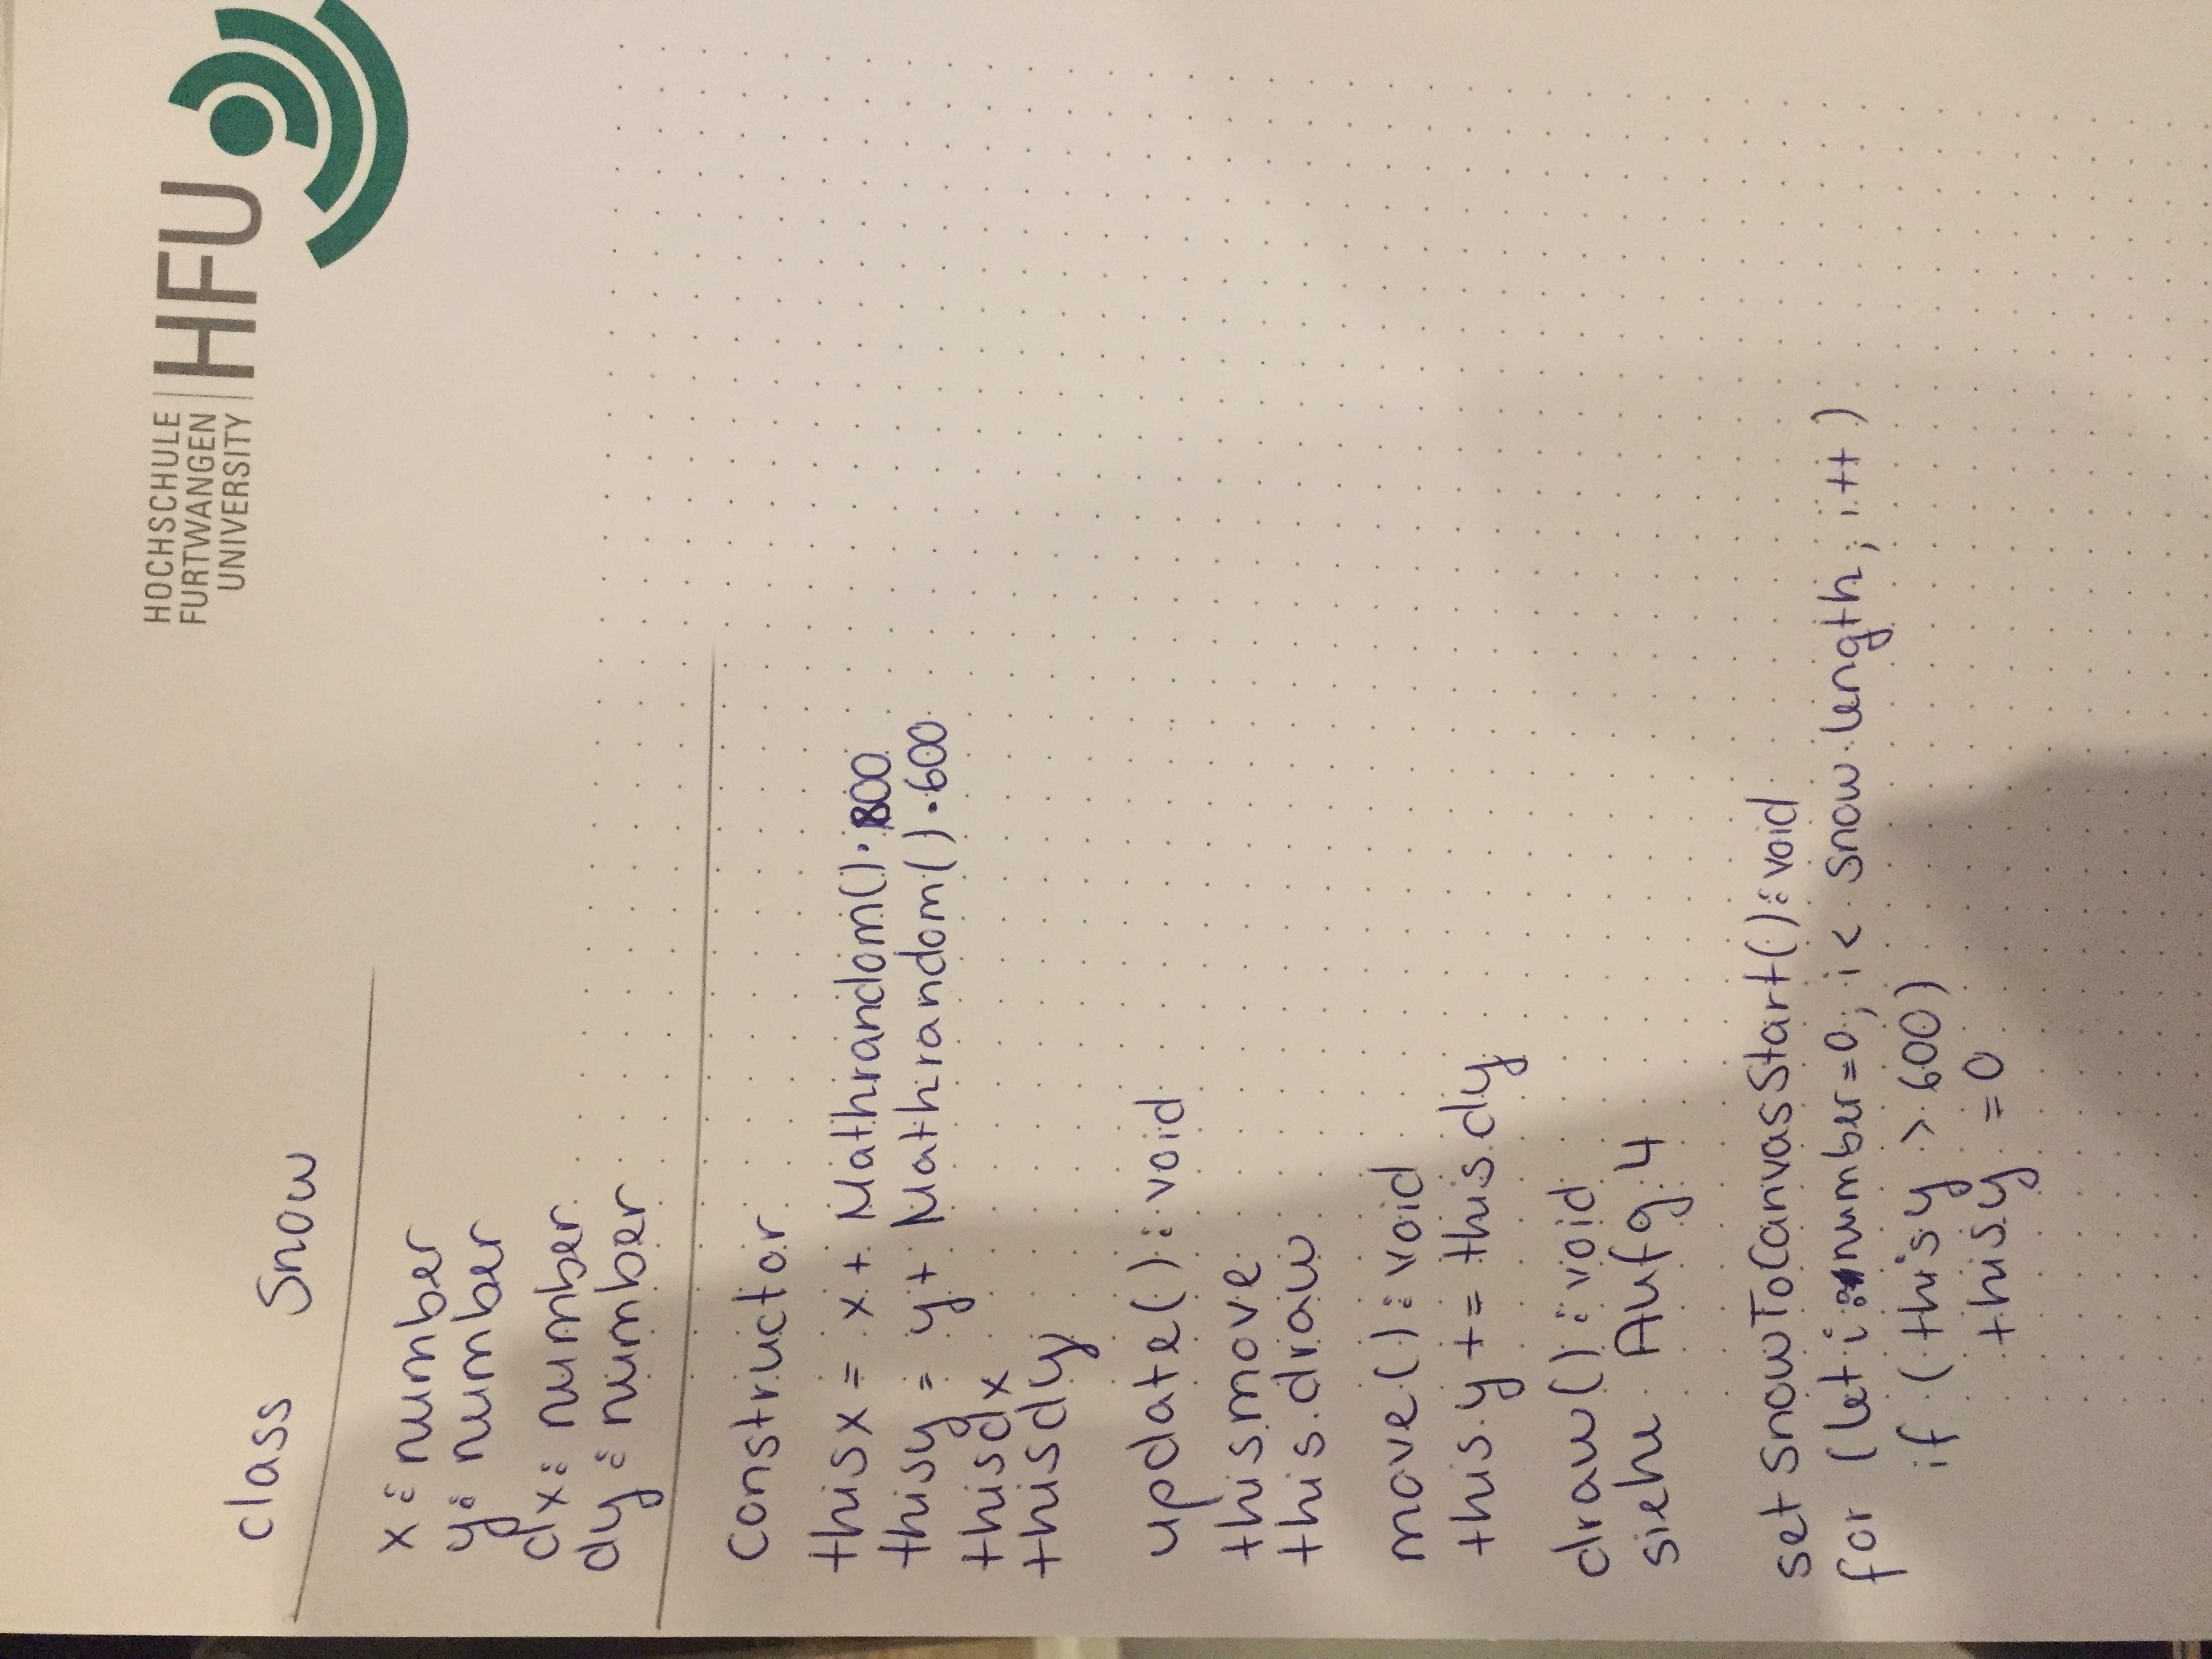 HOCHSCHULE
FURTWANGEN
UNIVERSITY
HFU
class Snow
x: number
y: number
dx: number
dy: number
constructor
thisx = x + Mathrandom()·800
thisy = y + Mathrandom()·600
thisdx
thisdy
update(): void
thismove
this.draw
move(): void
this.y += this.dy
draw(): void
siehe Aufg. 4
set SnowToCanvasStart(): void
for (let i: number=0; i < snow.length; i++)
if (thisy > 600)
thisy = 0